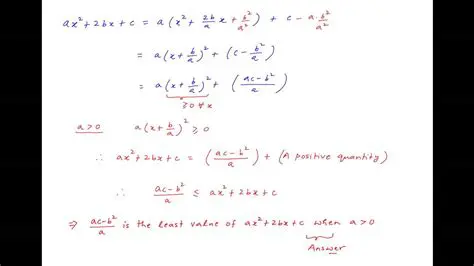 ax² + 2bx + c = a(x² + 2b/a x + b²/a²) + c - a·b²/a²
= a(x + b/a)² + (c - b²/a)
= a(x + b/a)² + (ac - b²/a)
≥0 ∀x
a>0 a(x + b/a)² ≥ 0
∴ ax² + 2bx + c = (ac - b²/a) + (A positive quantity)
∴ ac - b²/a ≤ ax² + 2bx + c
⇒ ac - b²/a is the least value of ax² + 2bx + c when a > 0
Answer